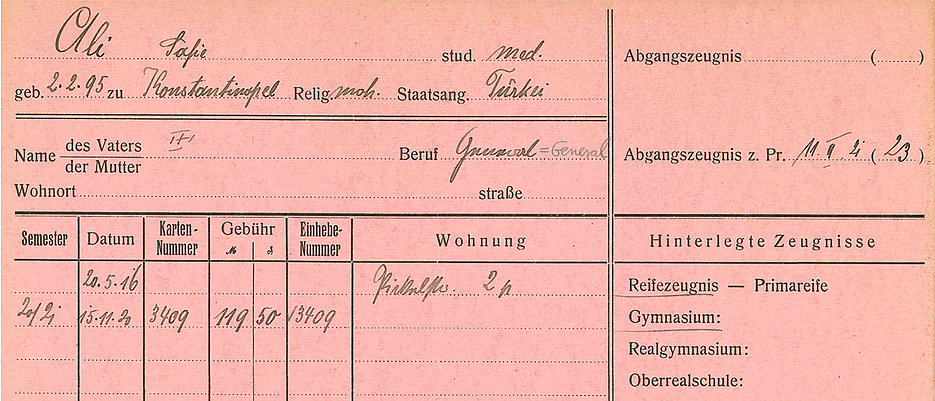 Ali Safie stud. med. Abgangszeugnis ( )
geb. 2.2.95 zu Konstantinopel Relig. moh. Staatsang. Türkei
Name des Vaters Beruf = General Abgangszeugnis z. Pr. ( 23 )
der Mutter
Wohnort straße
Semester Datum Karten-Nummer Gebühr M ₰ Einhebe-Nummer Wohnung Hinterlegte Zeugnisse
20.5.16 2 p Reifezeugnis — Primareife
20/21 15.11.20 3409 119 50 13409 Gymnasium:
Realgymnasium:
Oberrealschule: